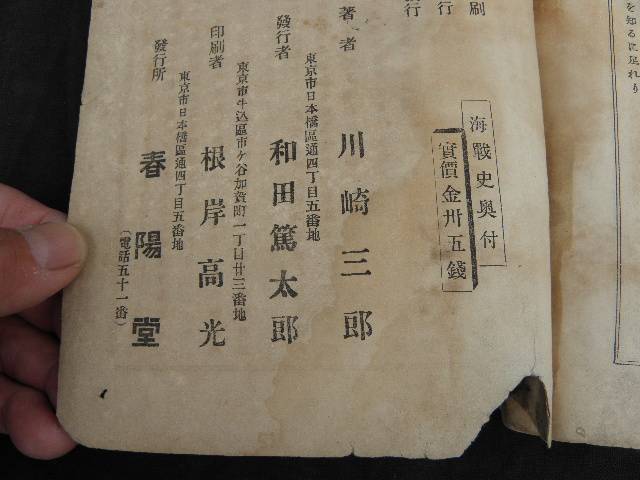 を知るに足れり
海戰史奥付
實價金卅五錢
刷
行
行
著者
川崎三郎
東京市日本橋區通四丁目五番地
發行者
和田篤太郎
東京市牛込區市ケ谷加賀町一丁目廿三番地
印刷者
根岸高光
東京市日本橋區通四丁目五番地
發行所
春陽堂
(電話五十一番)